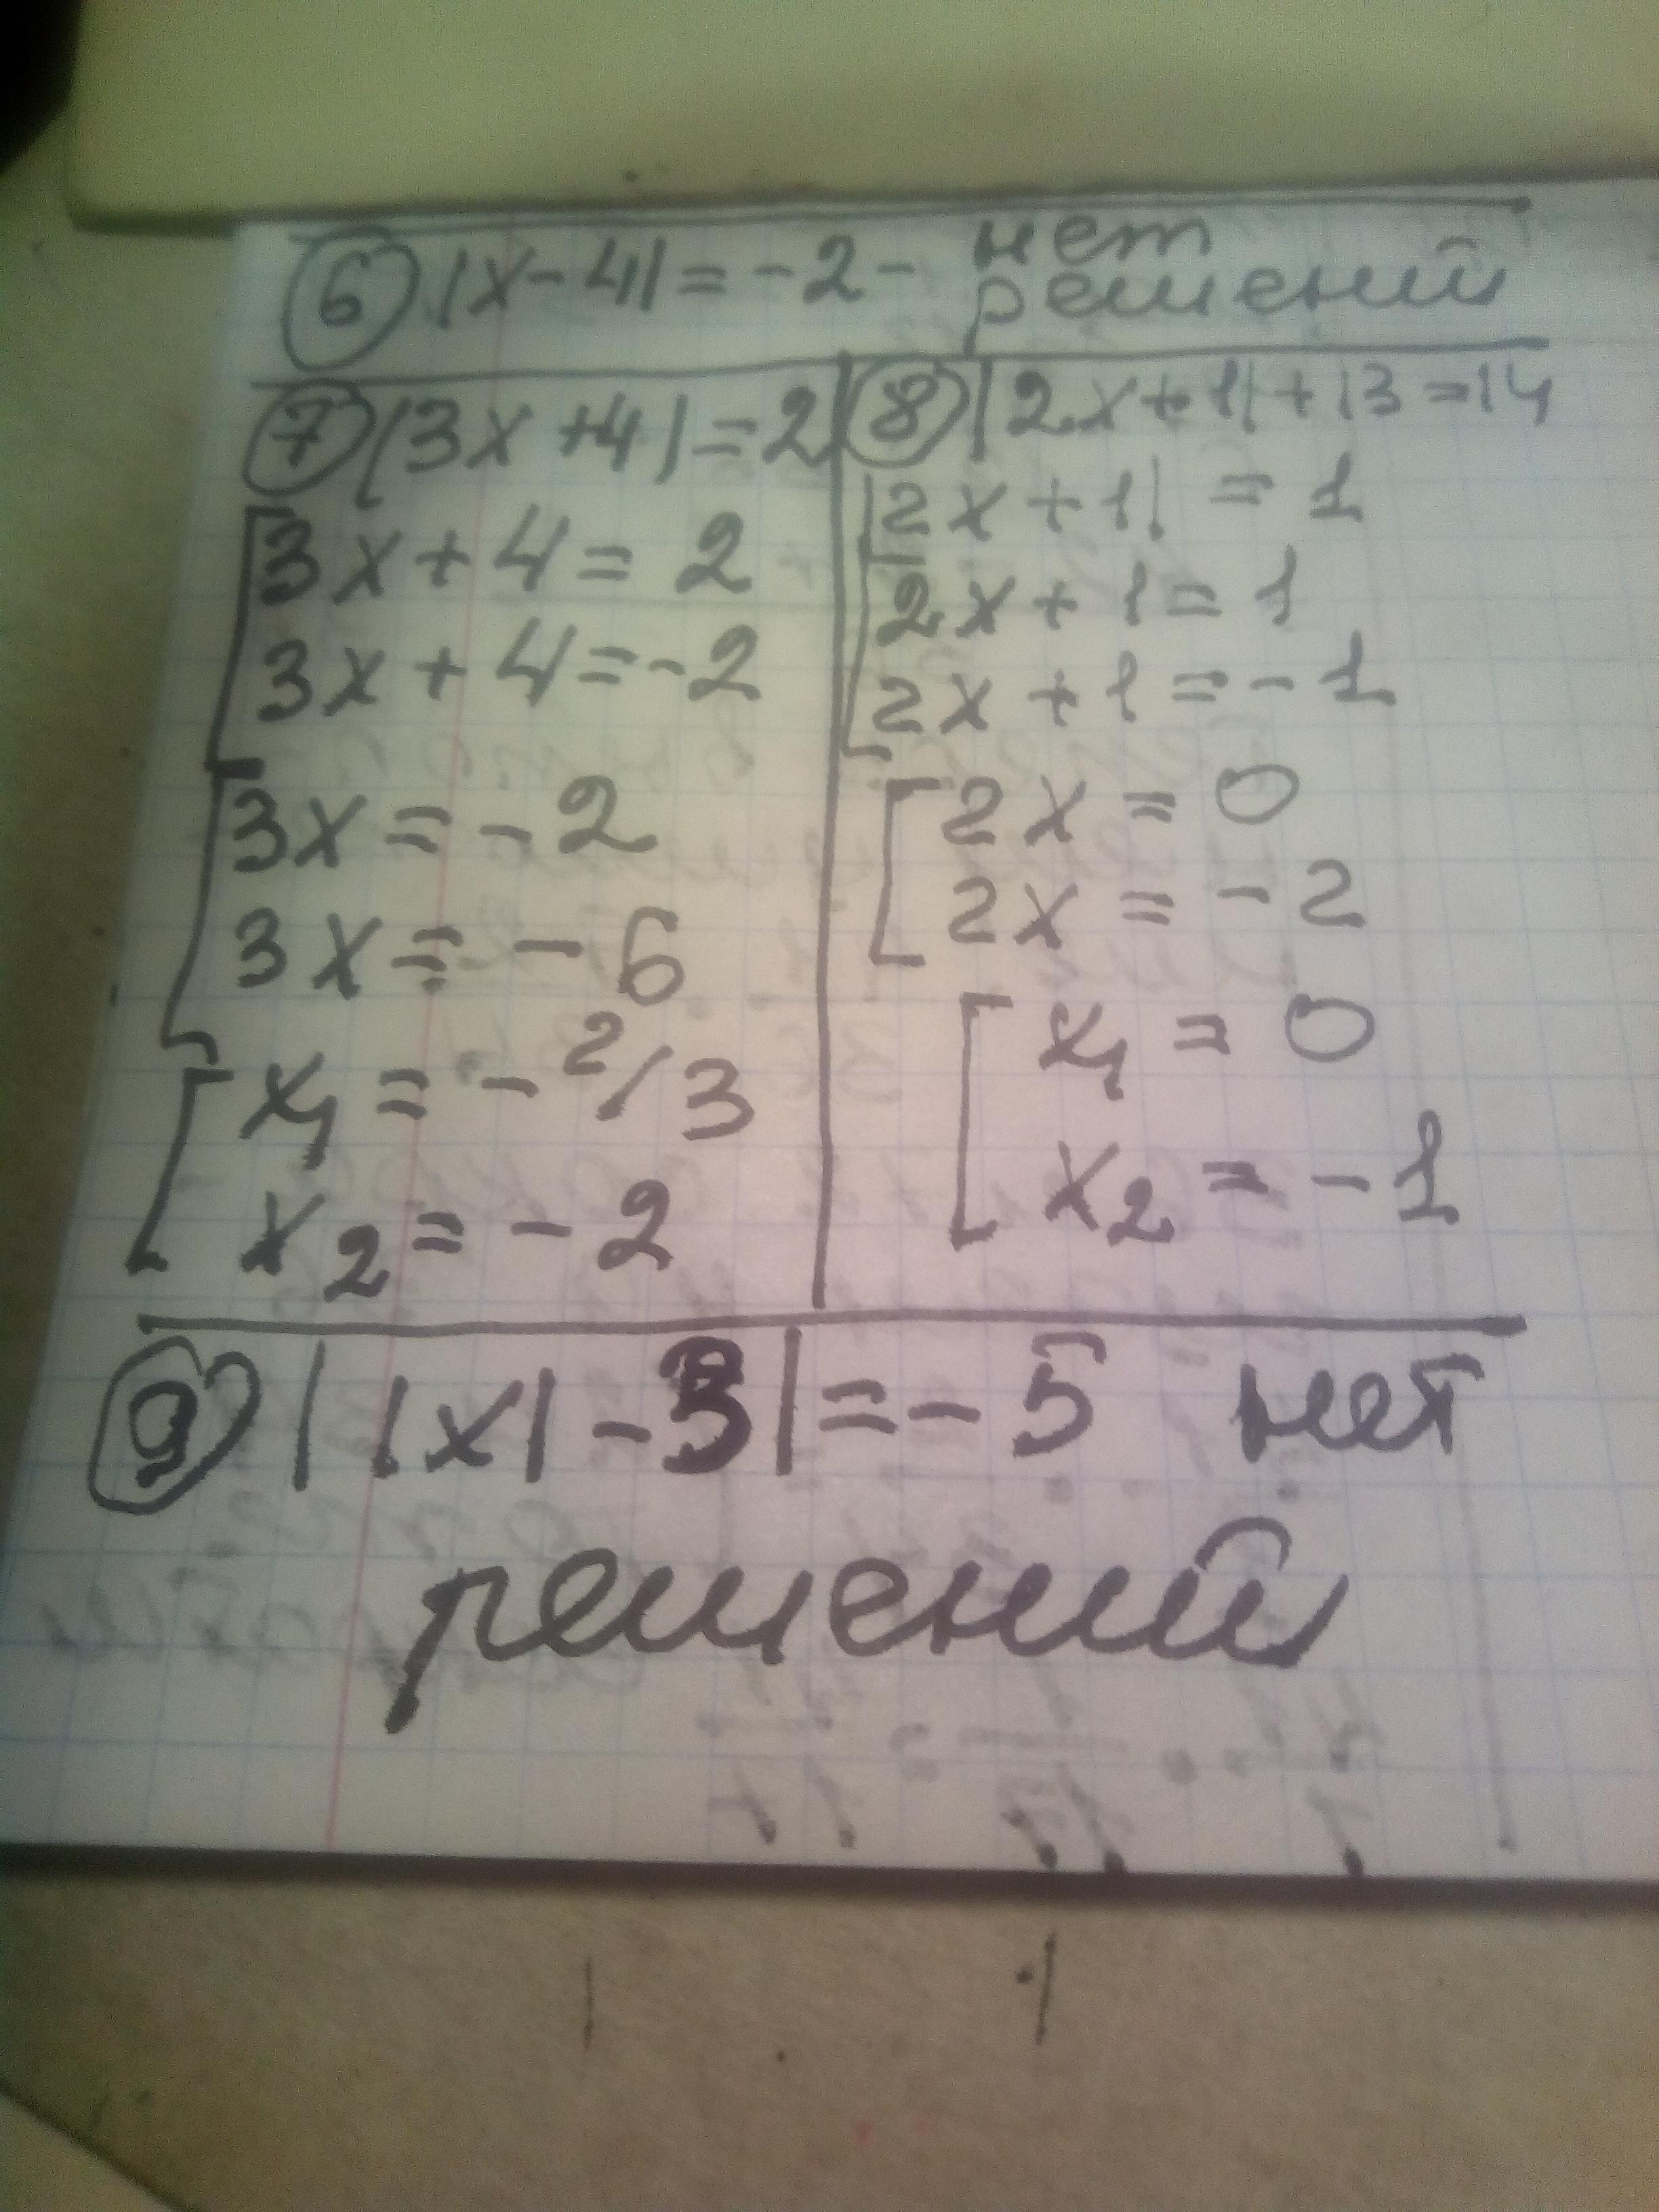 6 |x-4| = -2 - нет
решений
7 |3x+4| = 2
3x+4 = 2
3x+4 = -2
3x = -2
3x = -6
x₁ = -2/3
x₂ = -2
8 |2x+1|+13 = 14
|2x+1| = 1
2x+1 = 1
2x+1 = -1
2x = 0
2x = -2
x₁ = 0
x₂ = -1
9 ||x|-3| = -5 нет
решений